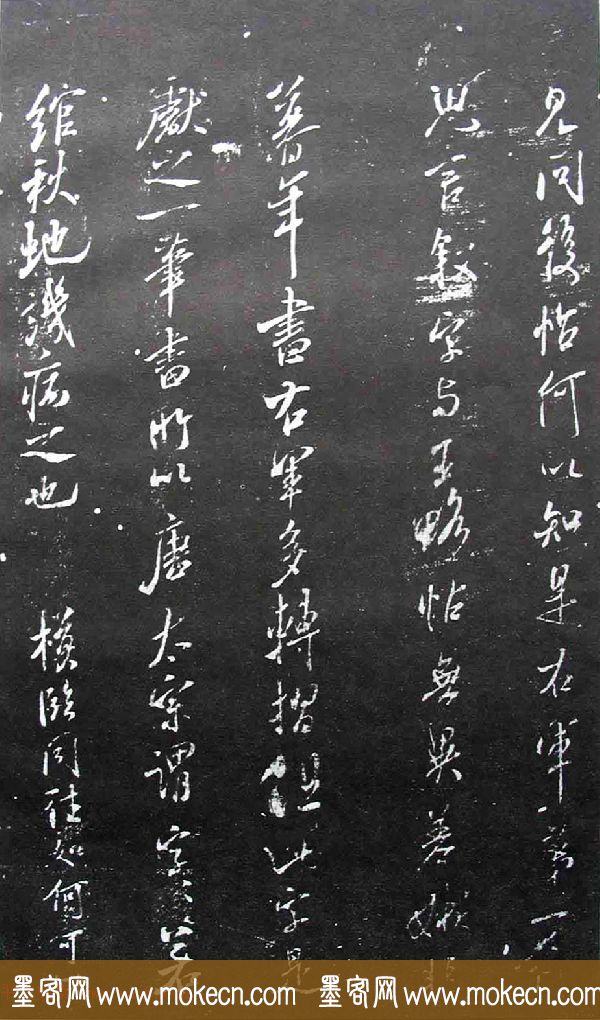 見問後帖何以知是右軍
言敘字与王略帖無異
暮年書右軍多轉摺但此字是
獻之一筆書所以唐太宗謂字々若
綰秋蛇譏病之也 臨同往如何可
墨客网 www.mokecn.com 墨客网 www.mokecn.com